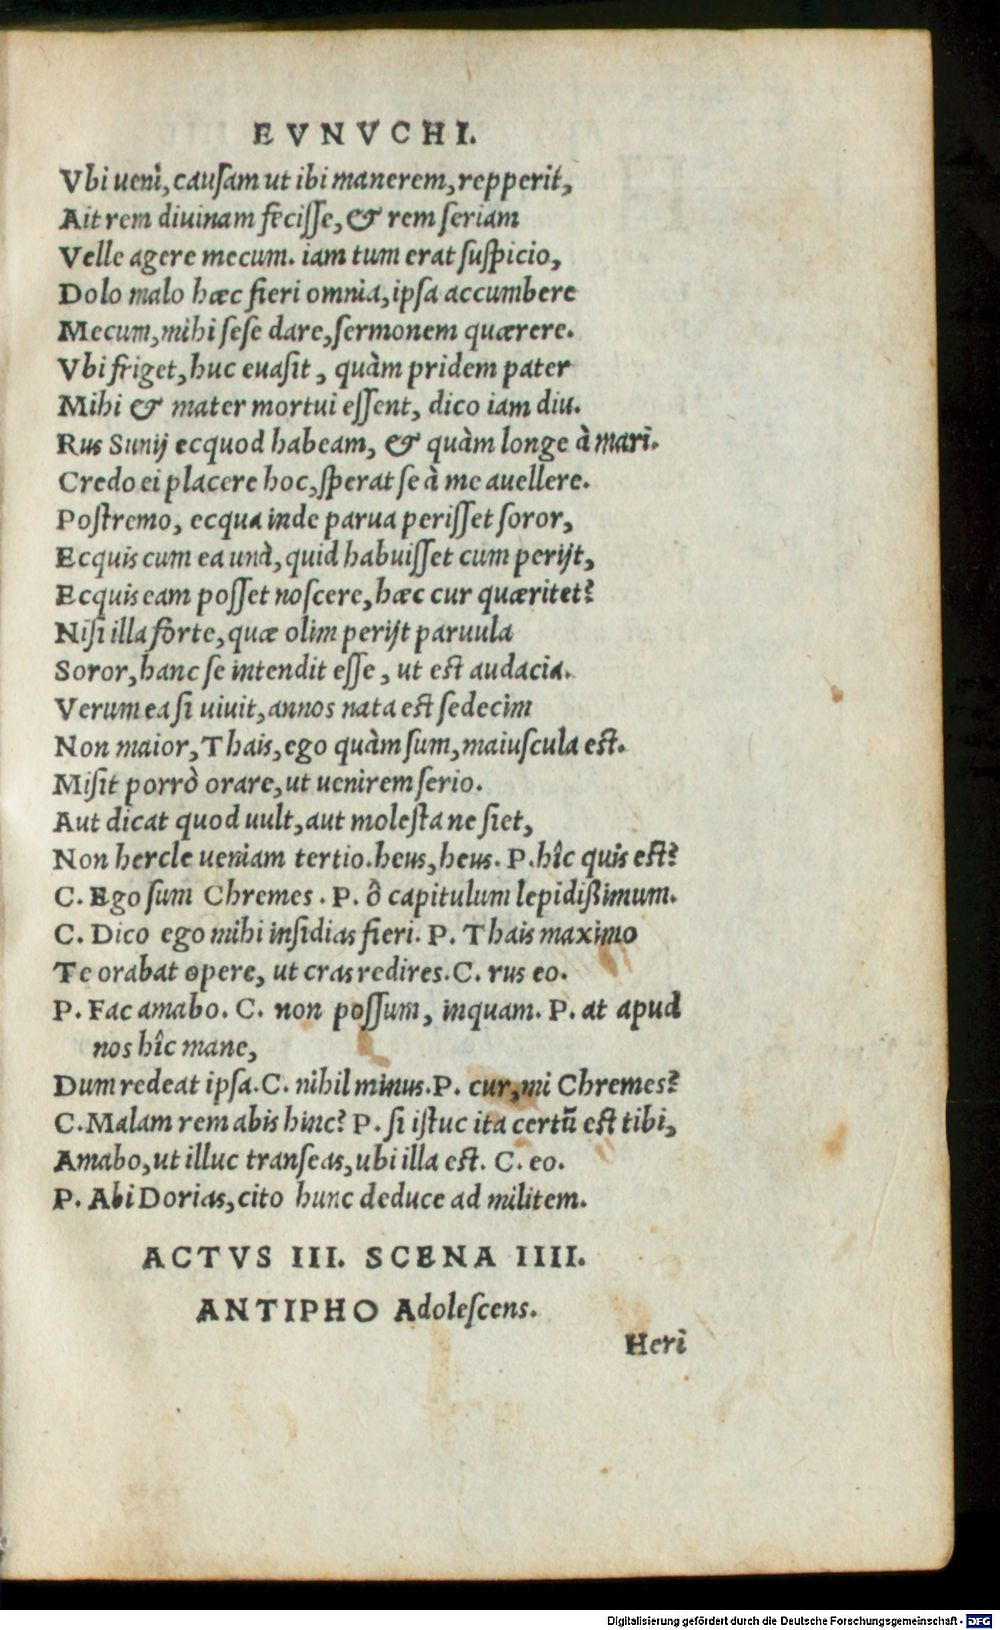 EVNVCHI.
Vbi ueni, causam ut ibi manerem, repperit,
Ait rem diuinam fecisse, & rem seriam
Velle agere mecum. iam tum erat suspicio,
Dolo malo hæc fieri omnia, ipsa accumbere
Mecum, mihi sese dare, sermonem quærere.
Vbi friget, huc euasit, quàm pridem pater
Mihi & mater mortui essent, dico iam diu.
Rus Sunij ecquod habeam, & quàm longe à mari.
Credo ei placere hoc, sperat se à me auellere.
Postremo, ecqua inde parua perisset soror,
Ecquis cum ea unà, quid habuisset cum perijt,
Ecquis eam posset noscere, hæc cur quæritet?
Nisi illa forte, quæ olim perijt paruula
Soror, hanc se intendit esse, ut est audacia.
Verum ea si uiuit, annos nata est sedecim
Non maior, Thais, ego quàm sum, maiuscula est.
Misit porrò orare, ut uenirem serio.
Aut dicat quod uult, aut molesta ne siet,
Non hercle ueniam tertio. heus, heus. P. hîc quis est?
C. Ego sum Chremes. P. ô capitulum lepidißimum.
C. Dico ego mihi insidias fieri. P. Thais maximo
Te orabat opere, ut cras redires. C. rus eo.
P. Fac amabo. C. non possum, inquam. P. at apud
nos hîc mane,
Dum redeat ipsa. C. nihil minus. P. cur, mi Chremes?
C. Malam rem abis hinc? P. si istuc ita certũ est tibi,
Amabo, ut illuc transeas, ubi illa est. C. eo.
P. Abi Dorias, cito hunc deduce ad militem.
ACTVS III. SCENA IIII.
ANTIPHO Adolescens.
Heri
Digitalisierung gefördert durch die Deutsche Forschungsgemeinschaft - DFG